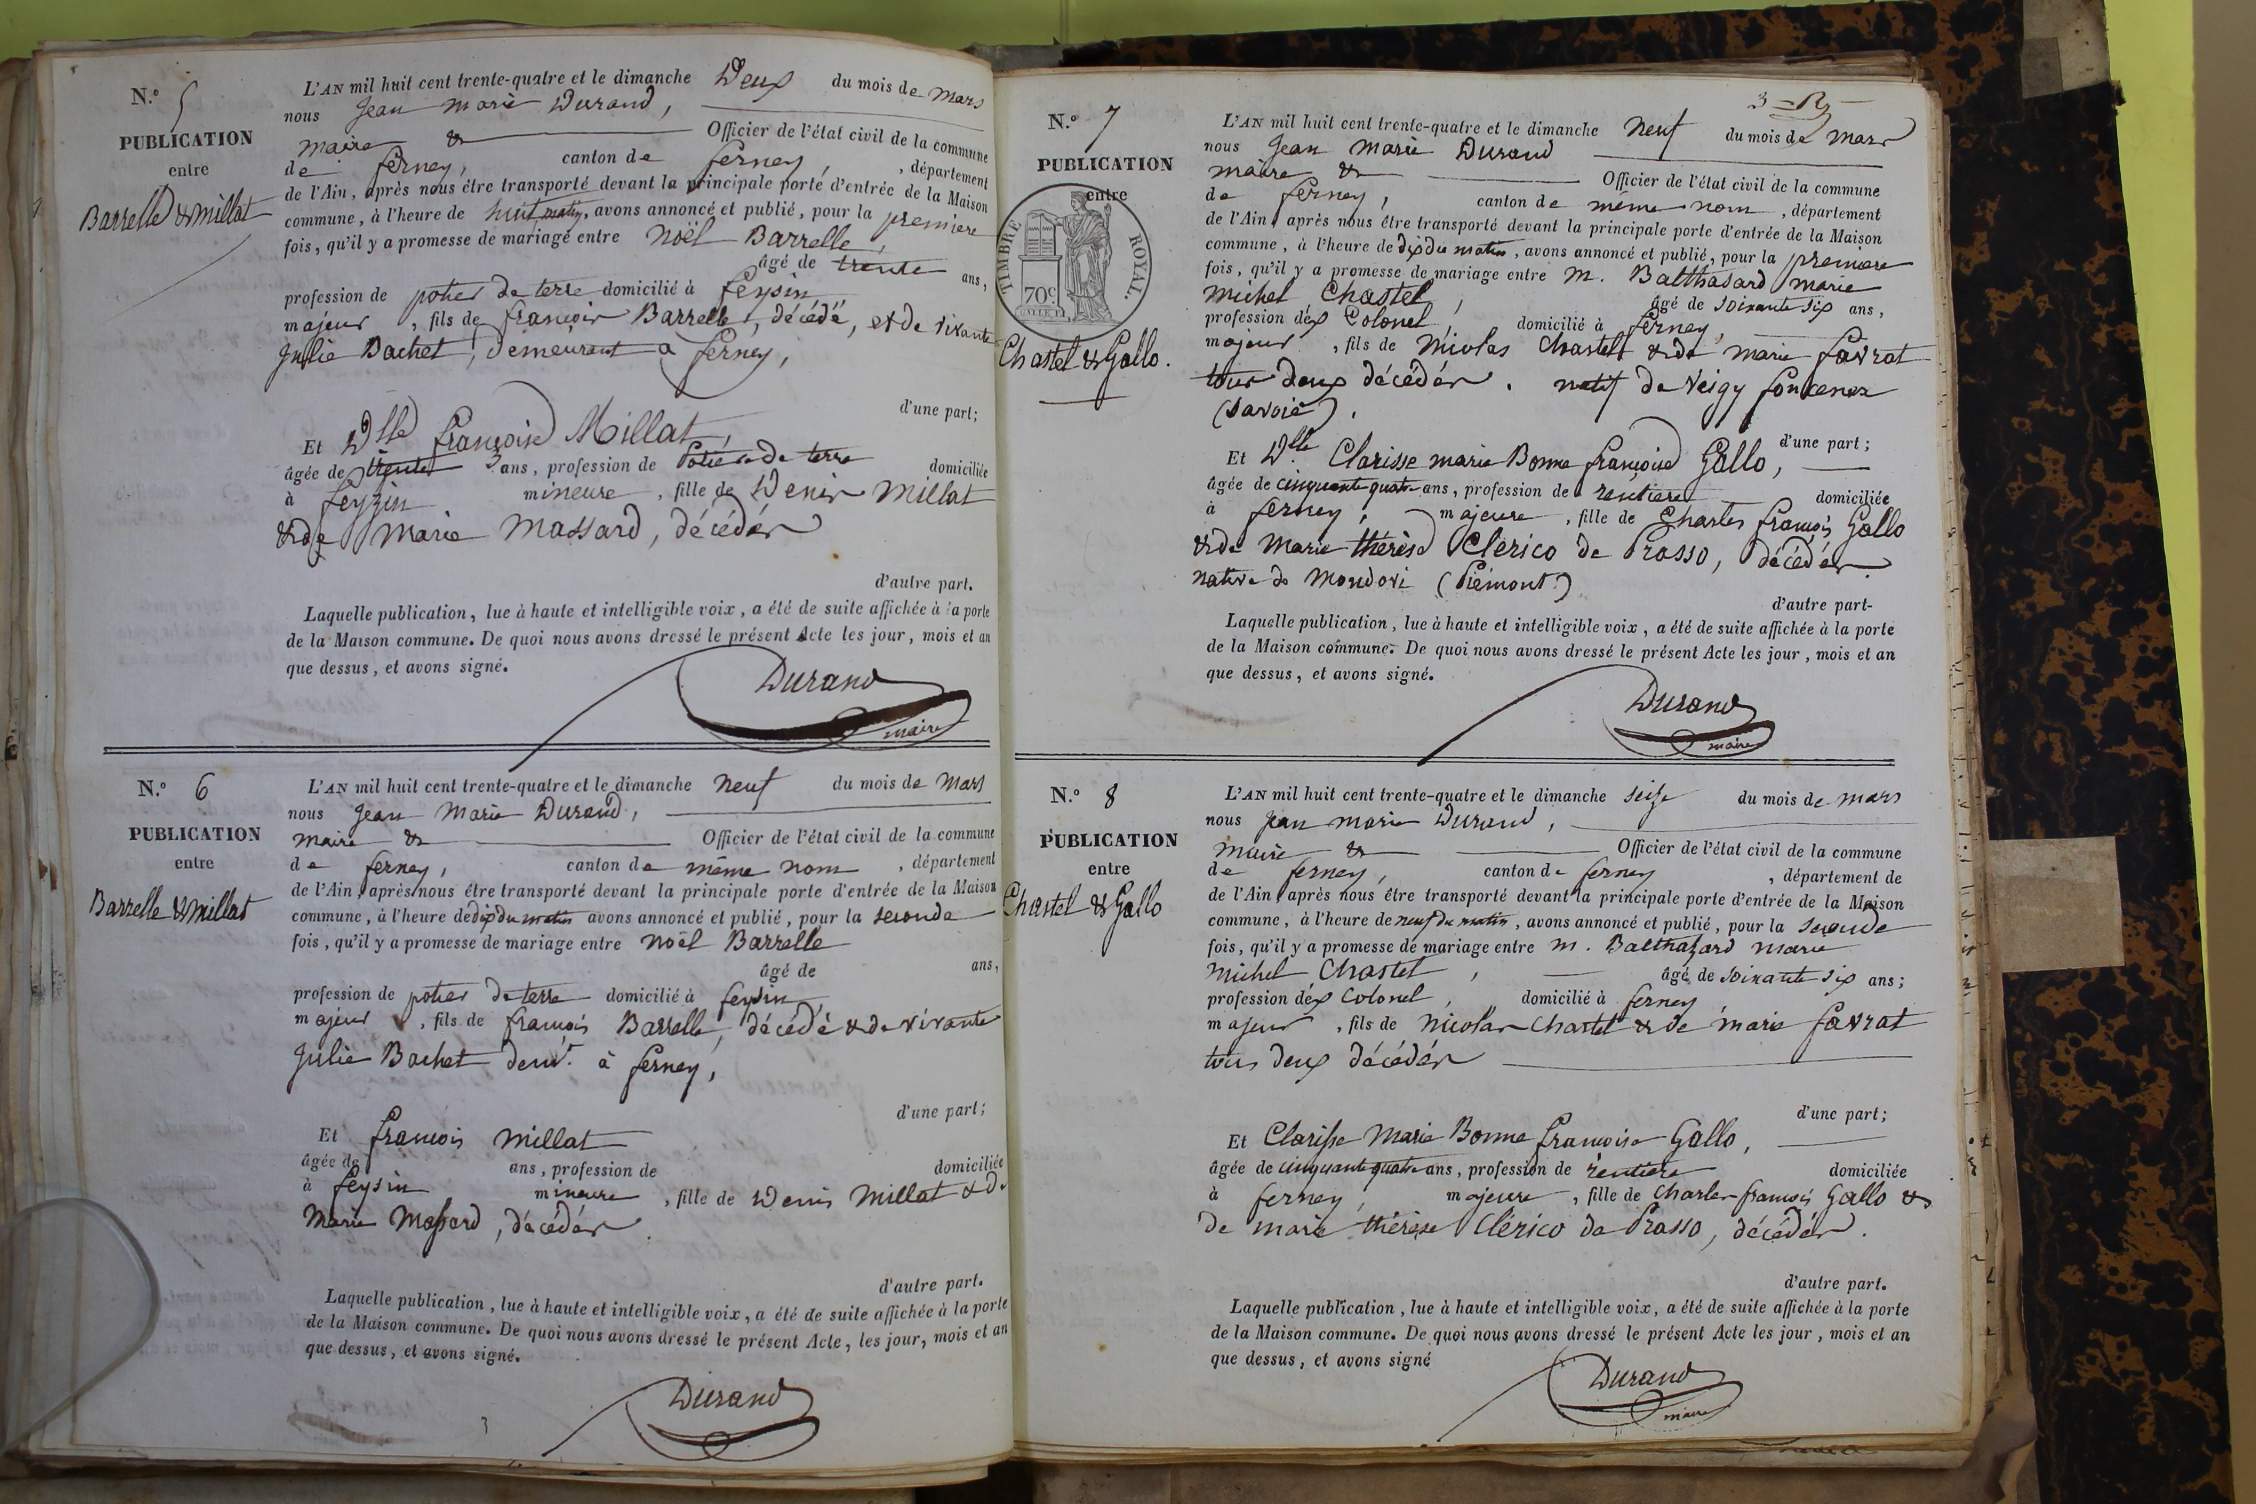 N.º 5
PUBLICATION
entre
Barrelle & Millat
L'AN mil huit cent trente-quatre et le dimanche Deux du mois de Mars
nous Jean Marie Durand,
maire & Officier de l'état civil de la commune
de ferney, canton de ferney, , département
de l'Ain, après nous être transporté devant la principale porte d'entrée de la Maison
commune, à l'heure de huit matin, avons annoncé et publié, pour la première
fois, qu'il y a promesse de mariage entre Noël Barrelle,
âgé de trente ans,
profession de potier de terre domicilié à feysin
majeur , fils de françois Barrelle, décédé, et de vivante
Julie Bachet, demeurant à ferney,
d'une part;
Et Dlle françoise Millat,
âgée de trente 3 ans, profession de Potière de terre domiciliée
à feyzin mineure , fille de Denis Millat
& de Marie Massard, décédés
d'autre part.
Laquelle publication, lue à haute et intelligible voix, a été de suite affichée à la porte
de la Maison commune. De quoi nous avons dressé le présent Acte les jour, mois et an
que dessus, et avons signé.
Durand
maire
N.º 6
PUBLICATION
entre
Barrelle & Millat
L'AN mil huit cent trente-quatre et le dimanche neuf du mois de Mars
nous Jean Marie Durand,
maire & Officier de l'état civil de la commune
de ferney, canton de même nom , département
de l'Ain, après nous être transporté devant la principale porte d'entrée de la Maison
commune, à l'heure de dix du matin avons annoncé et publié, pour la seconde
fois, qu'il y a promesse de mariage entre Noël Barrelle
âgé de ans,
profession de potier de terre domicilié à feysin,
majeur , fils de françois Barrelle, décédé & de vivante
Julie Bachet demt. à ferney,
d'une part;
Et francois Millat
âgée de ans, profession de domiciliée
à feysin mineure , fille de Denis Millat & de
Marie Massard, décédés.
d'autre part.
Laquelle publication, lue à haute et intelligible voix, a été de suite affichée à la porte
de la Maison commune. De quoi nous avons dressé le présent Acte, les jour, mois et an
que dessus, et avons signé.
Durand
3
N.º 7
PUBLICATION
entre
TIMBRE ROYAL.
70c
Chastel & Gallo.
L'AN mil huit cent trente-quatre et le dimanche neuf du mois de mars
nous Jean Marie Durand
maire & Officier de l'état civil de la commune
de ferney, canton de même nom , département
de l'Ain, après nous être transporté devant la principale porte d'entrée de la Maison
commune, à l'heure de dix du matin, avons annoncé et publié, pour la première
fois, qu'il y a promesse de mariage entre M. Balthasard marie
michel Chastel, âgé de soixante six ans,
profession d'ex Colonel, domicilié à ferney,
majeur , fils de Nicolas Chastel & de marie favrat
tous deux décédés. natif de Veigy foncenex
(Savoie).
d'une part;
Et Dlle Clarisse marie Bonne françoise Gallo,
âgée de cinquante quatre ans, profession de rentière domiciliée
à ferney, majeure , fille de Charles françois Gallo
& de Marie thérèse Clérico de Prasso, décédés.
native de Mondovi (Piémont)
d'autre part-
Laquelle publication, lue à haute et intelligible voix, a été de suite affichée à la porte
de la Maison commune. De quoi nous avons dressé le présent Acte les jour, mois et an
que dessus, et avons signé.
Durand
maire
N.º 8
PUBLICATION
entre
Chastel & Gallo
L'AN mil huit cent trente-quatre et le dimanche seize du mois de mars
nous Jean marie Durand,
maire & Officier de l'état civil de la commune
de ferney, canton de ferney , département de
de l'Ain, après nous être transporté devant la principale porte d'entrée de la Maison
commune, à l'heure de neuf du matin, avons annoncé et publié, pour la seconde
fois, qu'il y a promesse de mariage entre M. Balthazard marie
Michel Chastel, âgé de soixante six ans;
profession d'ex Colonel, domicilié à ferney
majeur , fils de Nicolas Chastel & de marie favrat
tous deux décédés
d'une part;
Et Clarisse Marie Bonne francoise Gallo,
âgée de cinquante quatre ans, profession de rentière domiciliée
à ferney, majeure , fille de Charles françois Gallo &
de marie thérèse Clérico de Prasso, décédés.
d'autre part.
Laquelle publication, lue à haute et intelligible voix, a été de suite affichée à la porte
de la Maison commune. De quoi nous avons dressé le présent Acte les jour, mois et an
que dessus, et avons signé
Durand
maire